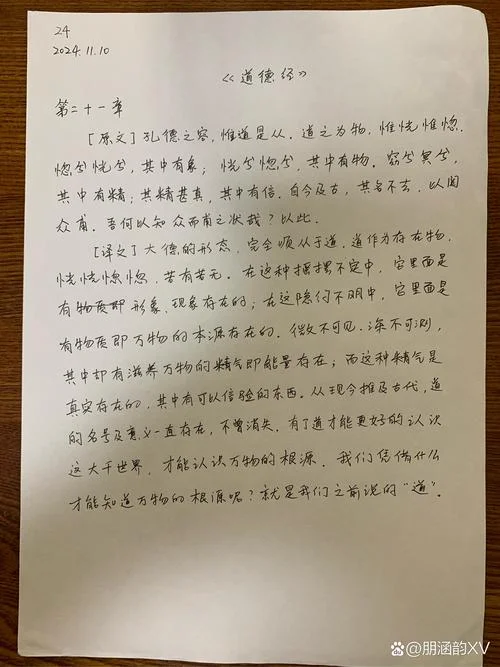 24
2024.11.10
《道德经》
第二十一章
［原文］孔德之容，惟道是从。道之为物，惟恍惟惚。
惚兮恍兮，其中有象；恍兮惚兮，其中有物。窈兮冥兮，
其中有精；其精甚真，其中有信。自今及古，其名不去，以阅
众甫。吾何以知众甫之状哉？以此。
［译文］大德的形态，完全顺从于道。道作为存在物，
恍恍惚惚，若有若无。在这种摇摆不定中，它里面是
有物质即形象、现象存在的；在这隐约不明中，它里面是
有物质即万物的本源存在的。微不可见、深不可测，
其中却有滋养万物的精气即能量存在；而这种精气是
真实存在的，其中有可以信验的东西。从现今推及古代，道
的名号及意义一直存在，不曾消失。有了道才能更好的认识
这大千世界，才能认识万物的根源。我们凭借什么
才能知道万物的根源呢？就是我们之前说的“道”。
朋涵韵XV